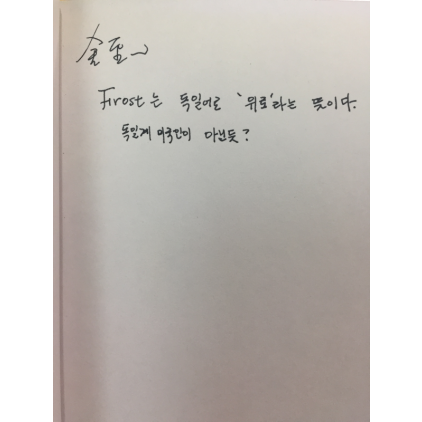 Frost는 독일어로 '위로'라는 뜻이다.
독일계 미국인이 아닌듯?